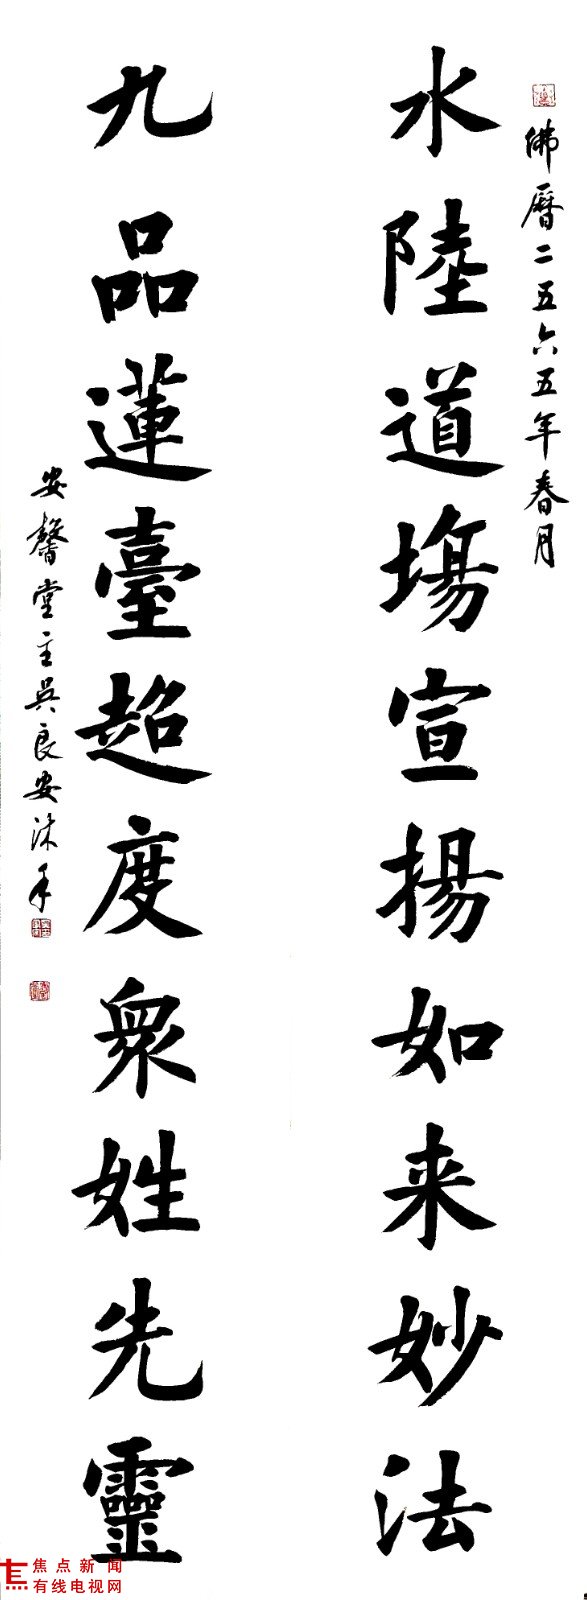 佛曆二五六五年春月
水陸道場宣揚如来妙法
九品蓮臺超度衆姓先靈
安馨堂主吳良安沐手
焦点新闻
有线电视网